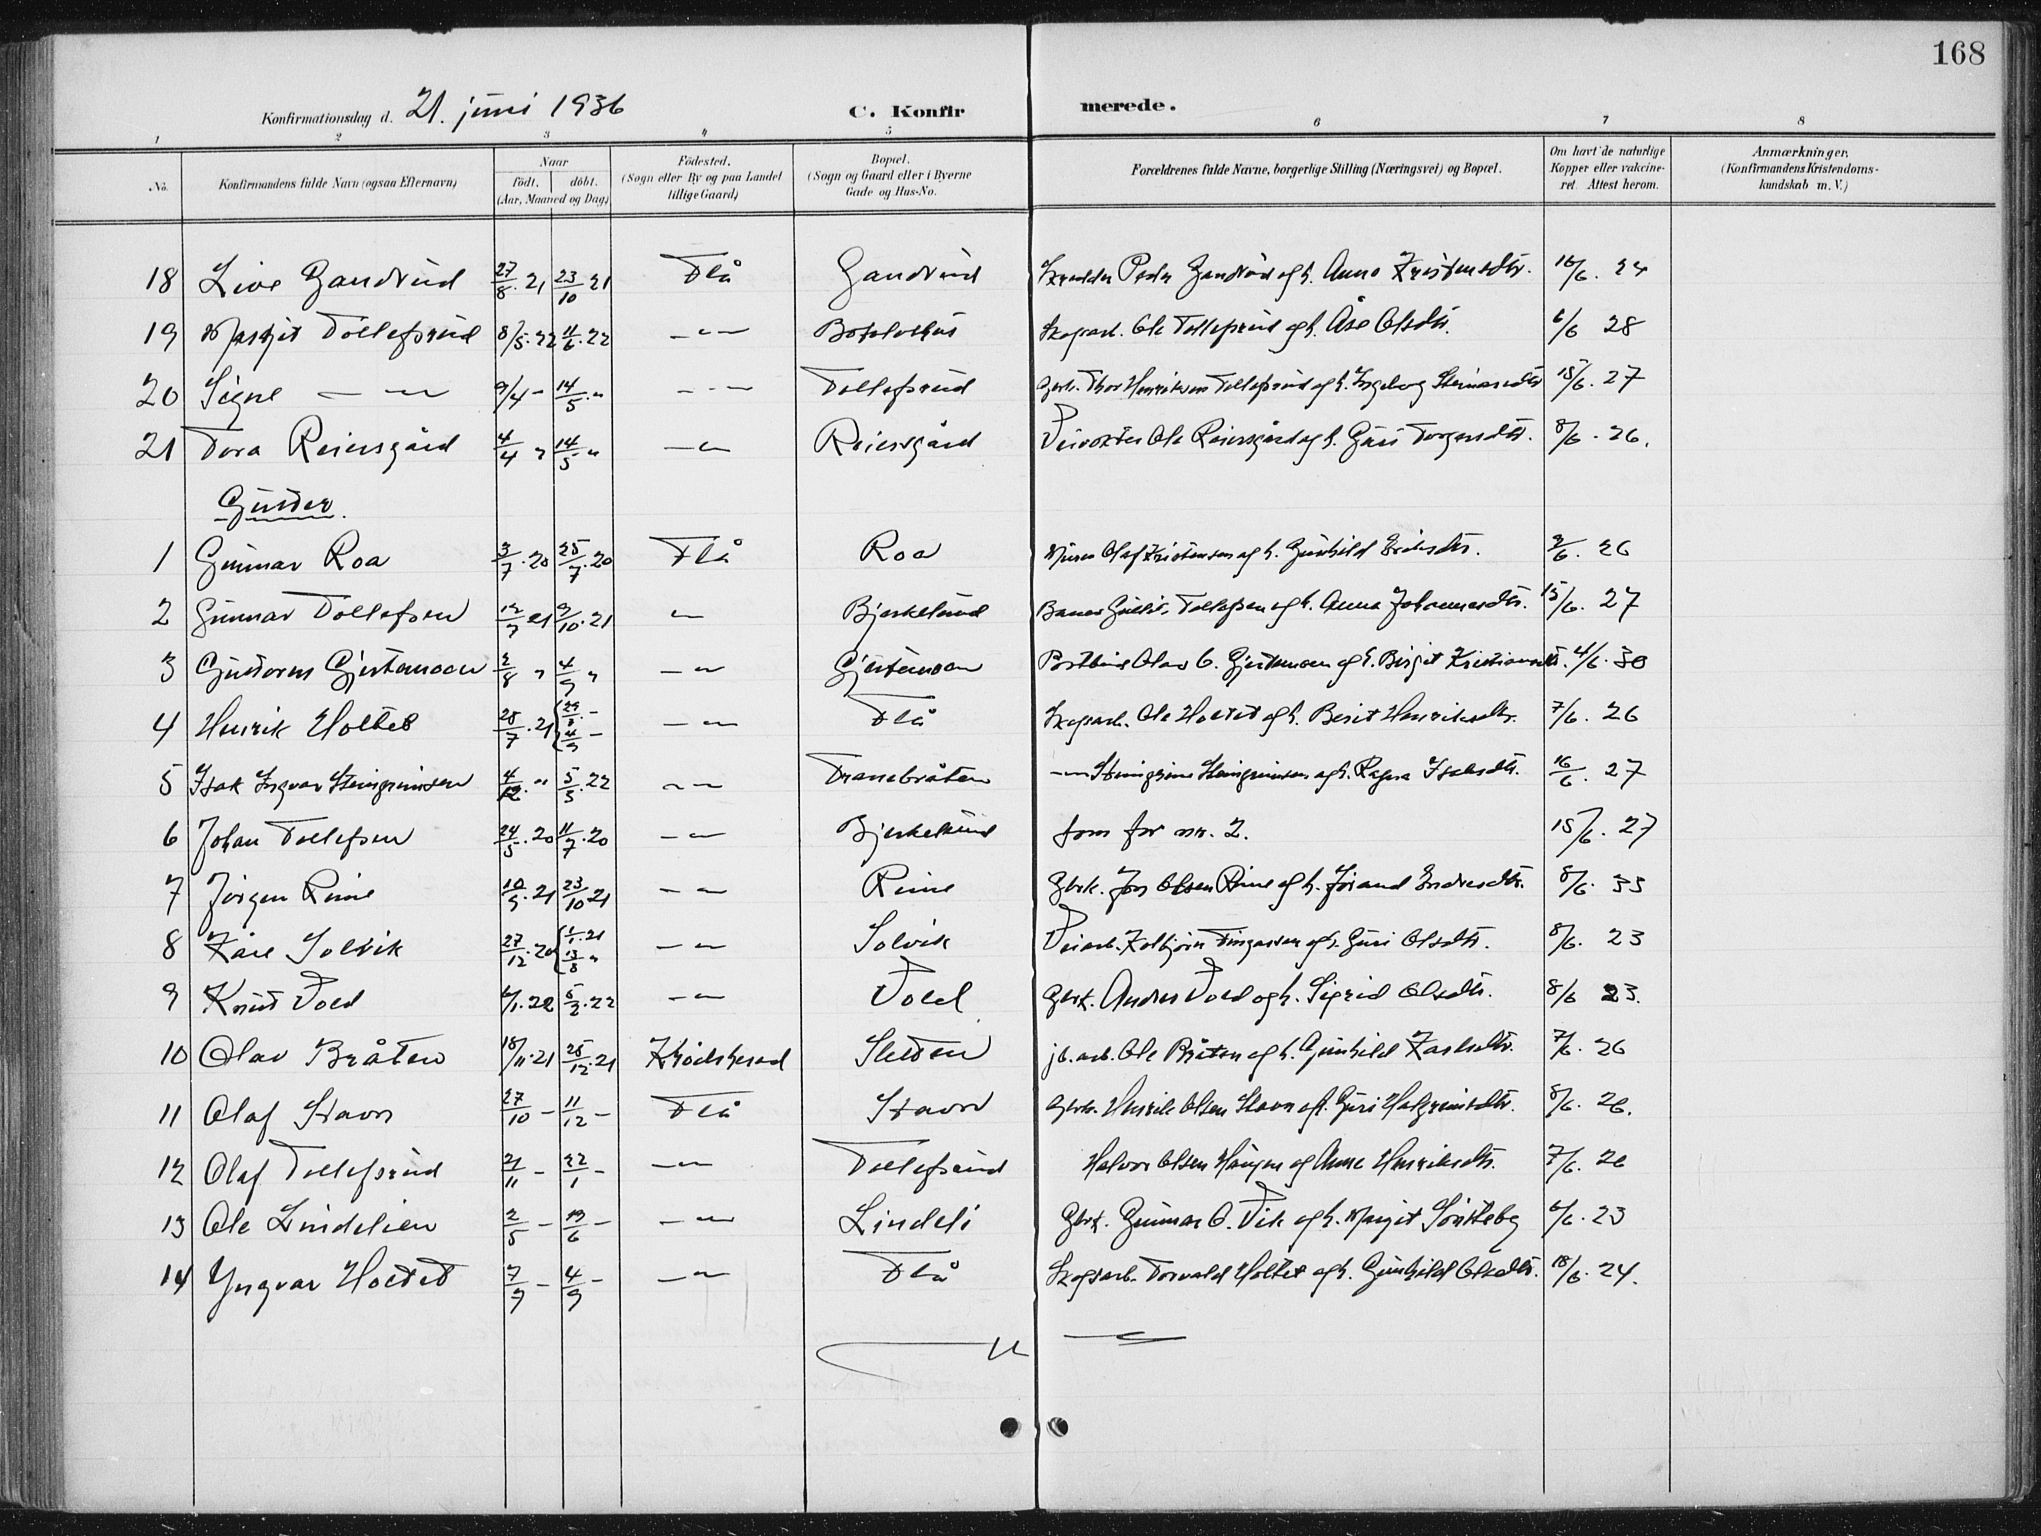 168
Konfirmationsdag d. 21. juni 1936 C. Konfir merede.
1 2 3 4 5 6 7 8
No. Konfirmandens fulde Navn (ogsaa Efternavn) Naar födt. döbt. (Aar, Maaned og Dag) Födested. (Sogn eller By og paa Landet tillige Gaard) Bopæl. (Sogn og Gaard eller i Byerne Gade og Hus-No. Forældrenes fulde Navne, borgerlige Stilling (Næringsvei) og Bopæl. Om havt de naturlige Kopper eller vakcineret. Attest herom. Anmærkninger. (Konfirmandens Kristendomskundskab m. V.)
18 Live Gandrud 27/8. 21 23/10 21 Flå Gandrud Skredder Peder Gandrud og h. Anne Kristensdtr. 16/6. 24
19 Margit Tollefsrud 8/5. 22 11/6. 22 — " — Skogarb. Ole Tollefsrud og h. Åse Olsdtr. 6/6 28
20 Signe — " — 9/4 - 14/5. " — " — Tollefsrud Gbr. Thor Henriksen Tollefsrud og h. Ingeborg Steinarsdtr 15/6. 27
21 Tora Reiersgård 4/4 " 14/5 " — " — Reiersgård Veivokter Ole Reiersgård og h. Guri Torgersdtr. 8/6. 26.
Gutter.
1 Gunnar Roa 3/7. 20 25/7. 20 Flå Roa Murer Olaf Kristensen og h. Gunhild Eriksdtr. 2/6. 26
2 Gunnar Tollefsen 12/7 21 9/10. 21 — " — Bjerkelund Baner Gullik Tollefsen og h. Anna Johannesdtr. 15/6. 27
3 Guttorm Gjestemoen 2/8 " 4/9 " — " — Gjestemoen Postbud Olav G. Gjestemoen og h. Birgit Kristiansdtr. 4/6. 30
4 Henrik Holtet 28/7. 21 4/9 - — " — Flå Skogarb. Ole Holtet og h. Berit Henriksdtr. 7/6. 26
5 Isak Ingvar Steingrimsen 4/12. " 5/5. 22 — " — Tranebråten — " — Steingrim Steingrimsen og h. Ragna Isaksdtr. 16/6. 27
6 Johan Tollefsen 24/5. 20 11/7. 20 — " — Bjerkelund som for nr. 2. 15/6. 27
7 Jörgen Rime 10/9. 21 23/10 21 — " — Rime Gbrk. Jon Olsen Rime og h. Jörand Endresdtr. 8/6. 33
8 Kåre Solvik 27/12. 20 1/1. 21 13/8 " — " — Solvik Veiarb. Kolbjörn Tingassen og h. Guri Olsdtr. 8/6. 23
9 Knut Vold 6/1. 22 5/2. 22 — " — Vold Gbrk. Anders Vold og h. Sigrid Olsdtr. 8/6 23.
10 Olav Bråten 18/11. 21 25/12. 21 Krödsherad Sletten jb. arb. Ole Bråten og h. Gunhild Karlsdtr. 7/6. 26
11 Olaf Stavn 27/10 - 11/12 - Flå Stavn Gbrk. Henrik Olsen Stavn og h. Guri Halgrimsdtr. 8/6. 26.
12 Olaf Tollefsrud 2/11 - 22/1 - — " — Tollefsrud Halvor Olsen Haugen og Anne Henriksdtr. 7/6. 26
13 Ole Lindelien 2/5 - 19/6 - — " — Lindeli Gbrk. Gunnar O. Vik og h. Margit Sörteberg 6/6. 23
14 Yngvar Holtet 7/9 - 4/9 - — " — Flå Skogsarb. Torvald Holtet og h. Gunhild Olsdtr. 18/6. 24.